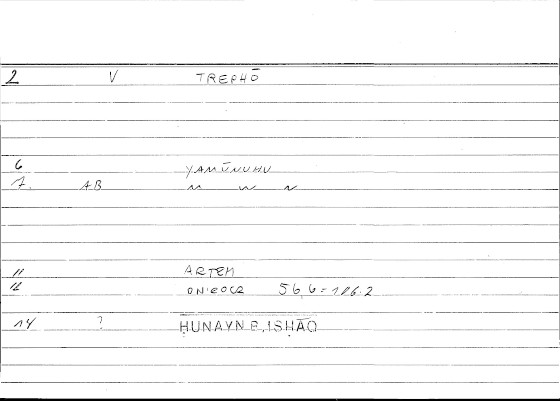 2 V TREPHŌ
6 YAMŪNUHU
7. AB M W N
11 ARTEM
12 ONIROCR 56,6 = 106.2
14 ? ḤUNAYN B. ISḤĀQ